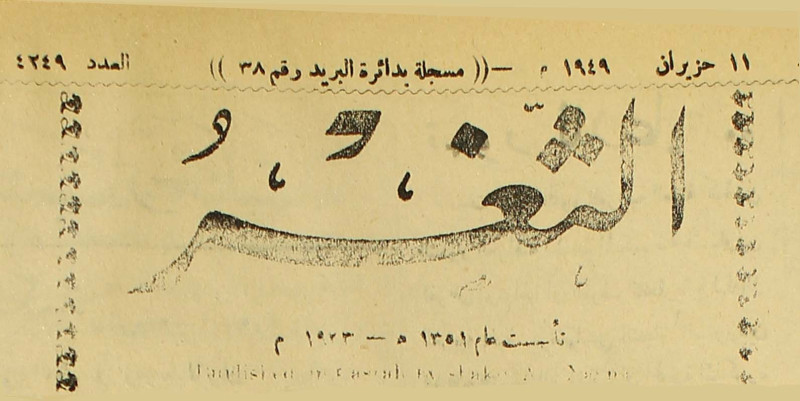 ١١ حزيران ١٩٤٩ م —(( مسجلة بدائرة البريد ورقم ٣٨ )) العدد ٤٢٤٩
الثغر
تأسست عام ١٣٥١ ه — ١٩٣٣ م